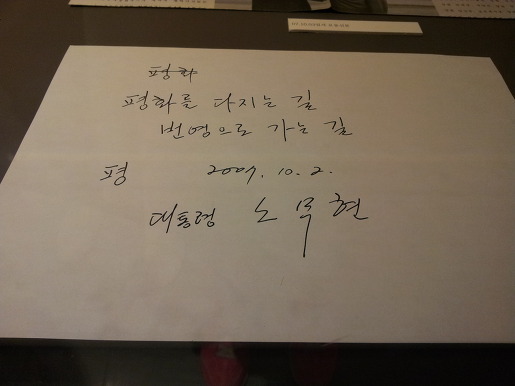 평화
평화를 다지는 길
번영으로 가는 길
평 2007. 10. 2.
대통령 노무현